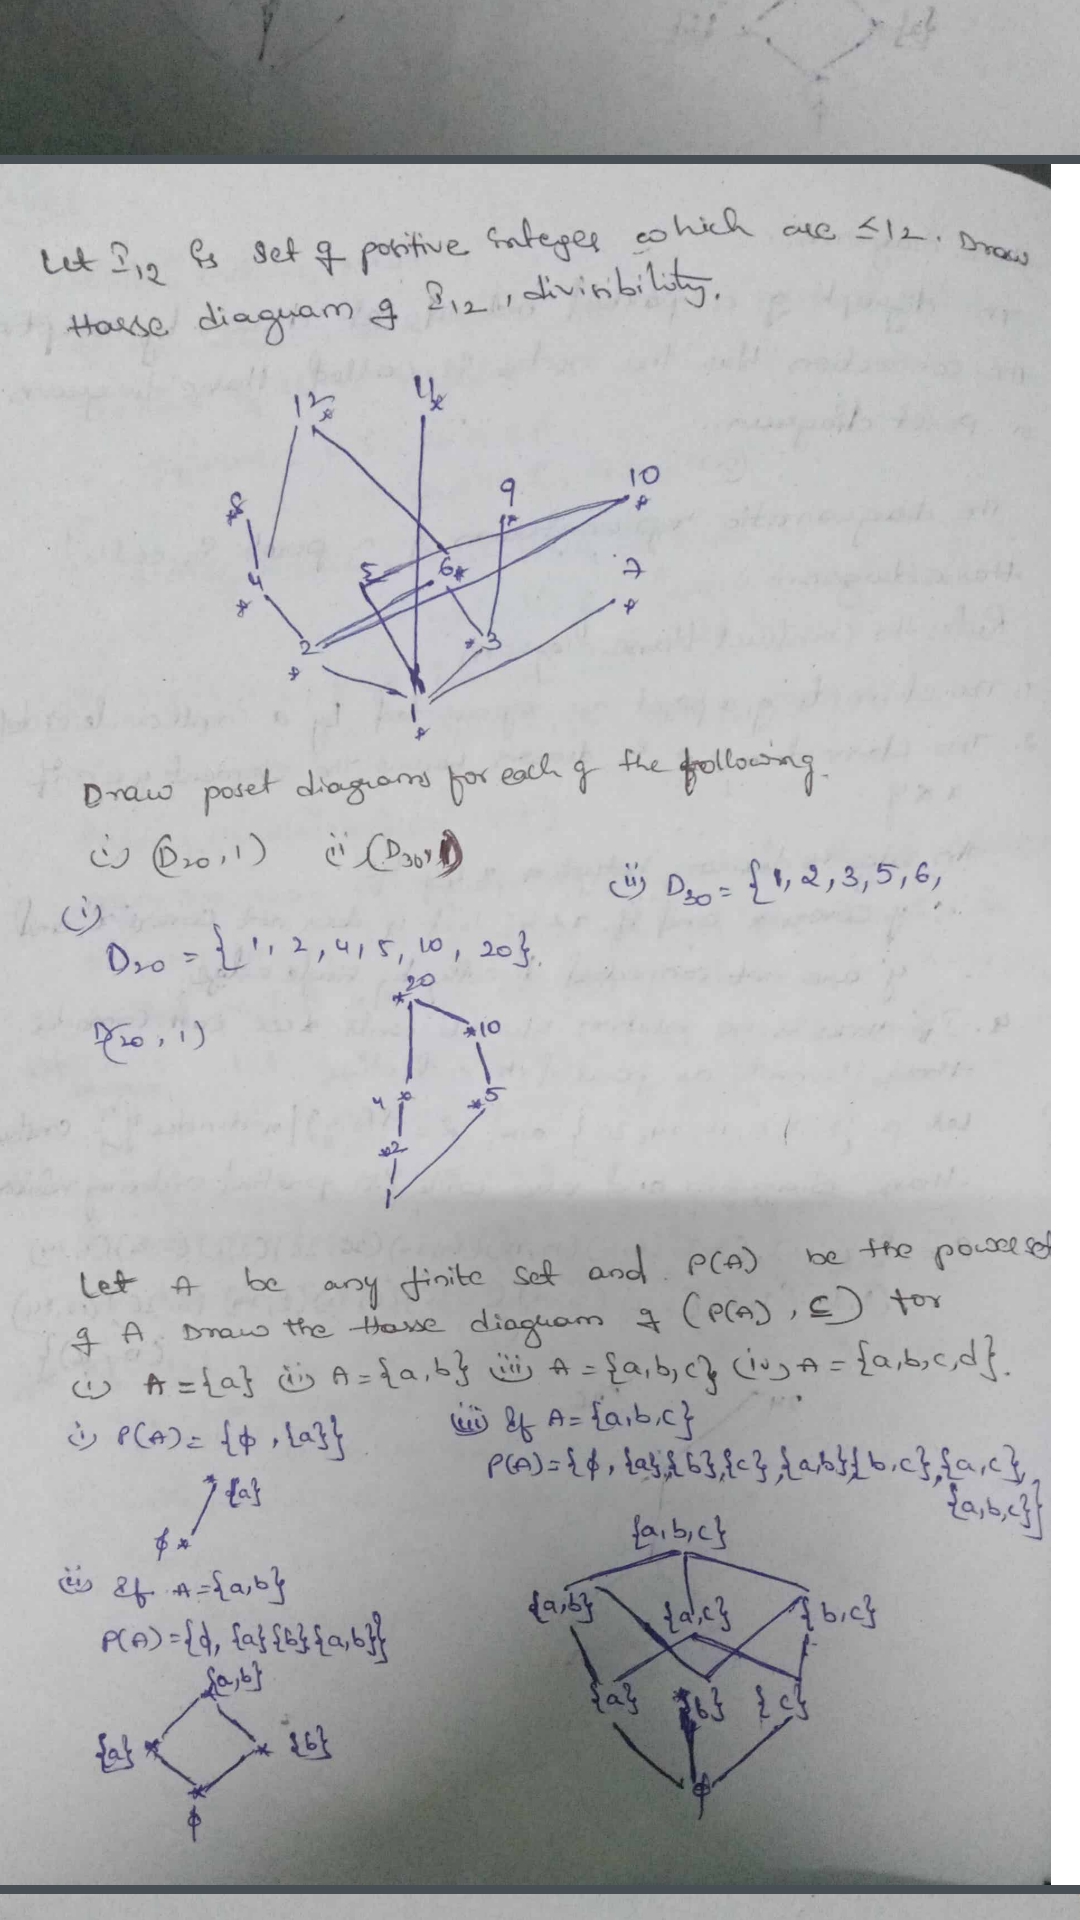 Let I₁₂ is set of positive integer which are ≤12. Draw
Hasse diagram of I₁₂, divisibility.
12
11
8
9
10
4
5
6
7
2
3
1
Draw poset diagrams for each of the following.
(i) (D₂₀, 1) (ii) (D₃₀, 1)
(i)
(ii) D₃₀ = {1, 2, 3, 5, 6,
D₂₀ = {1, 2, 4, 5, 10, 20}.
D(₂₀, 1)
20
10
4
5
2
1
Let A be any finite set and P(A) be the powerset
of A. Draw the Hasse diagram of (P(A), ⊆) for
(i) A = {a} (ii) A = {a, b} (iii) A = {a, b, c} (iv) A = {a, b, c, d}.
(i) P(A) = {ϕ, {a}}
{a}
ϕ
(ii) If A = {a, b}
P(A) = {ϕ, {a} {b} {a, b}}
{a, b}
{a}
{b}
ϕ
(iii) If A = {a, b, c}
P(A) = {ϕ, {a}, {b}, {c}, {a, b} {b, c}, {a, c},
{a, b, c}}
{a, b, c}
{a, b} {a, c} {b, c}
{a} {b} {c}
ϕ